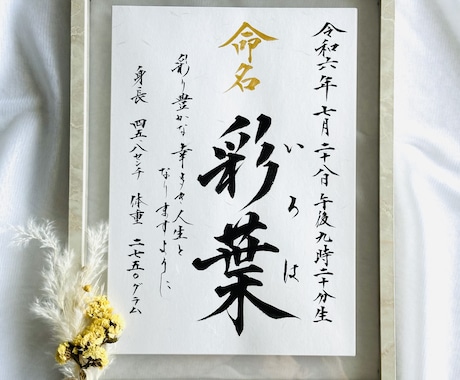 令和六年 七月二十八日 午後九時二十分生
命名
彩葉
いろは
彩り豊かな 幸多き人生と
なりますように
身長 四五・八センチ 体重 二七五〇グラム